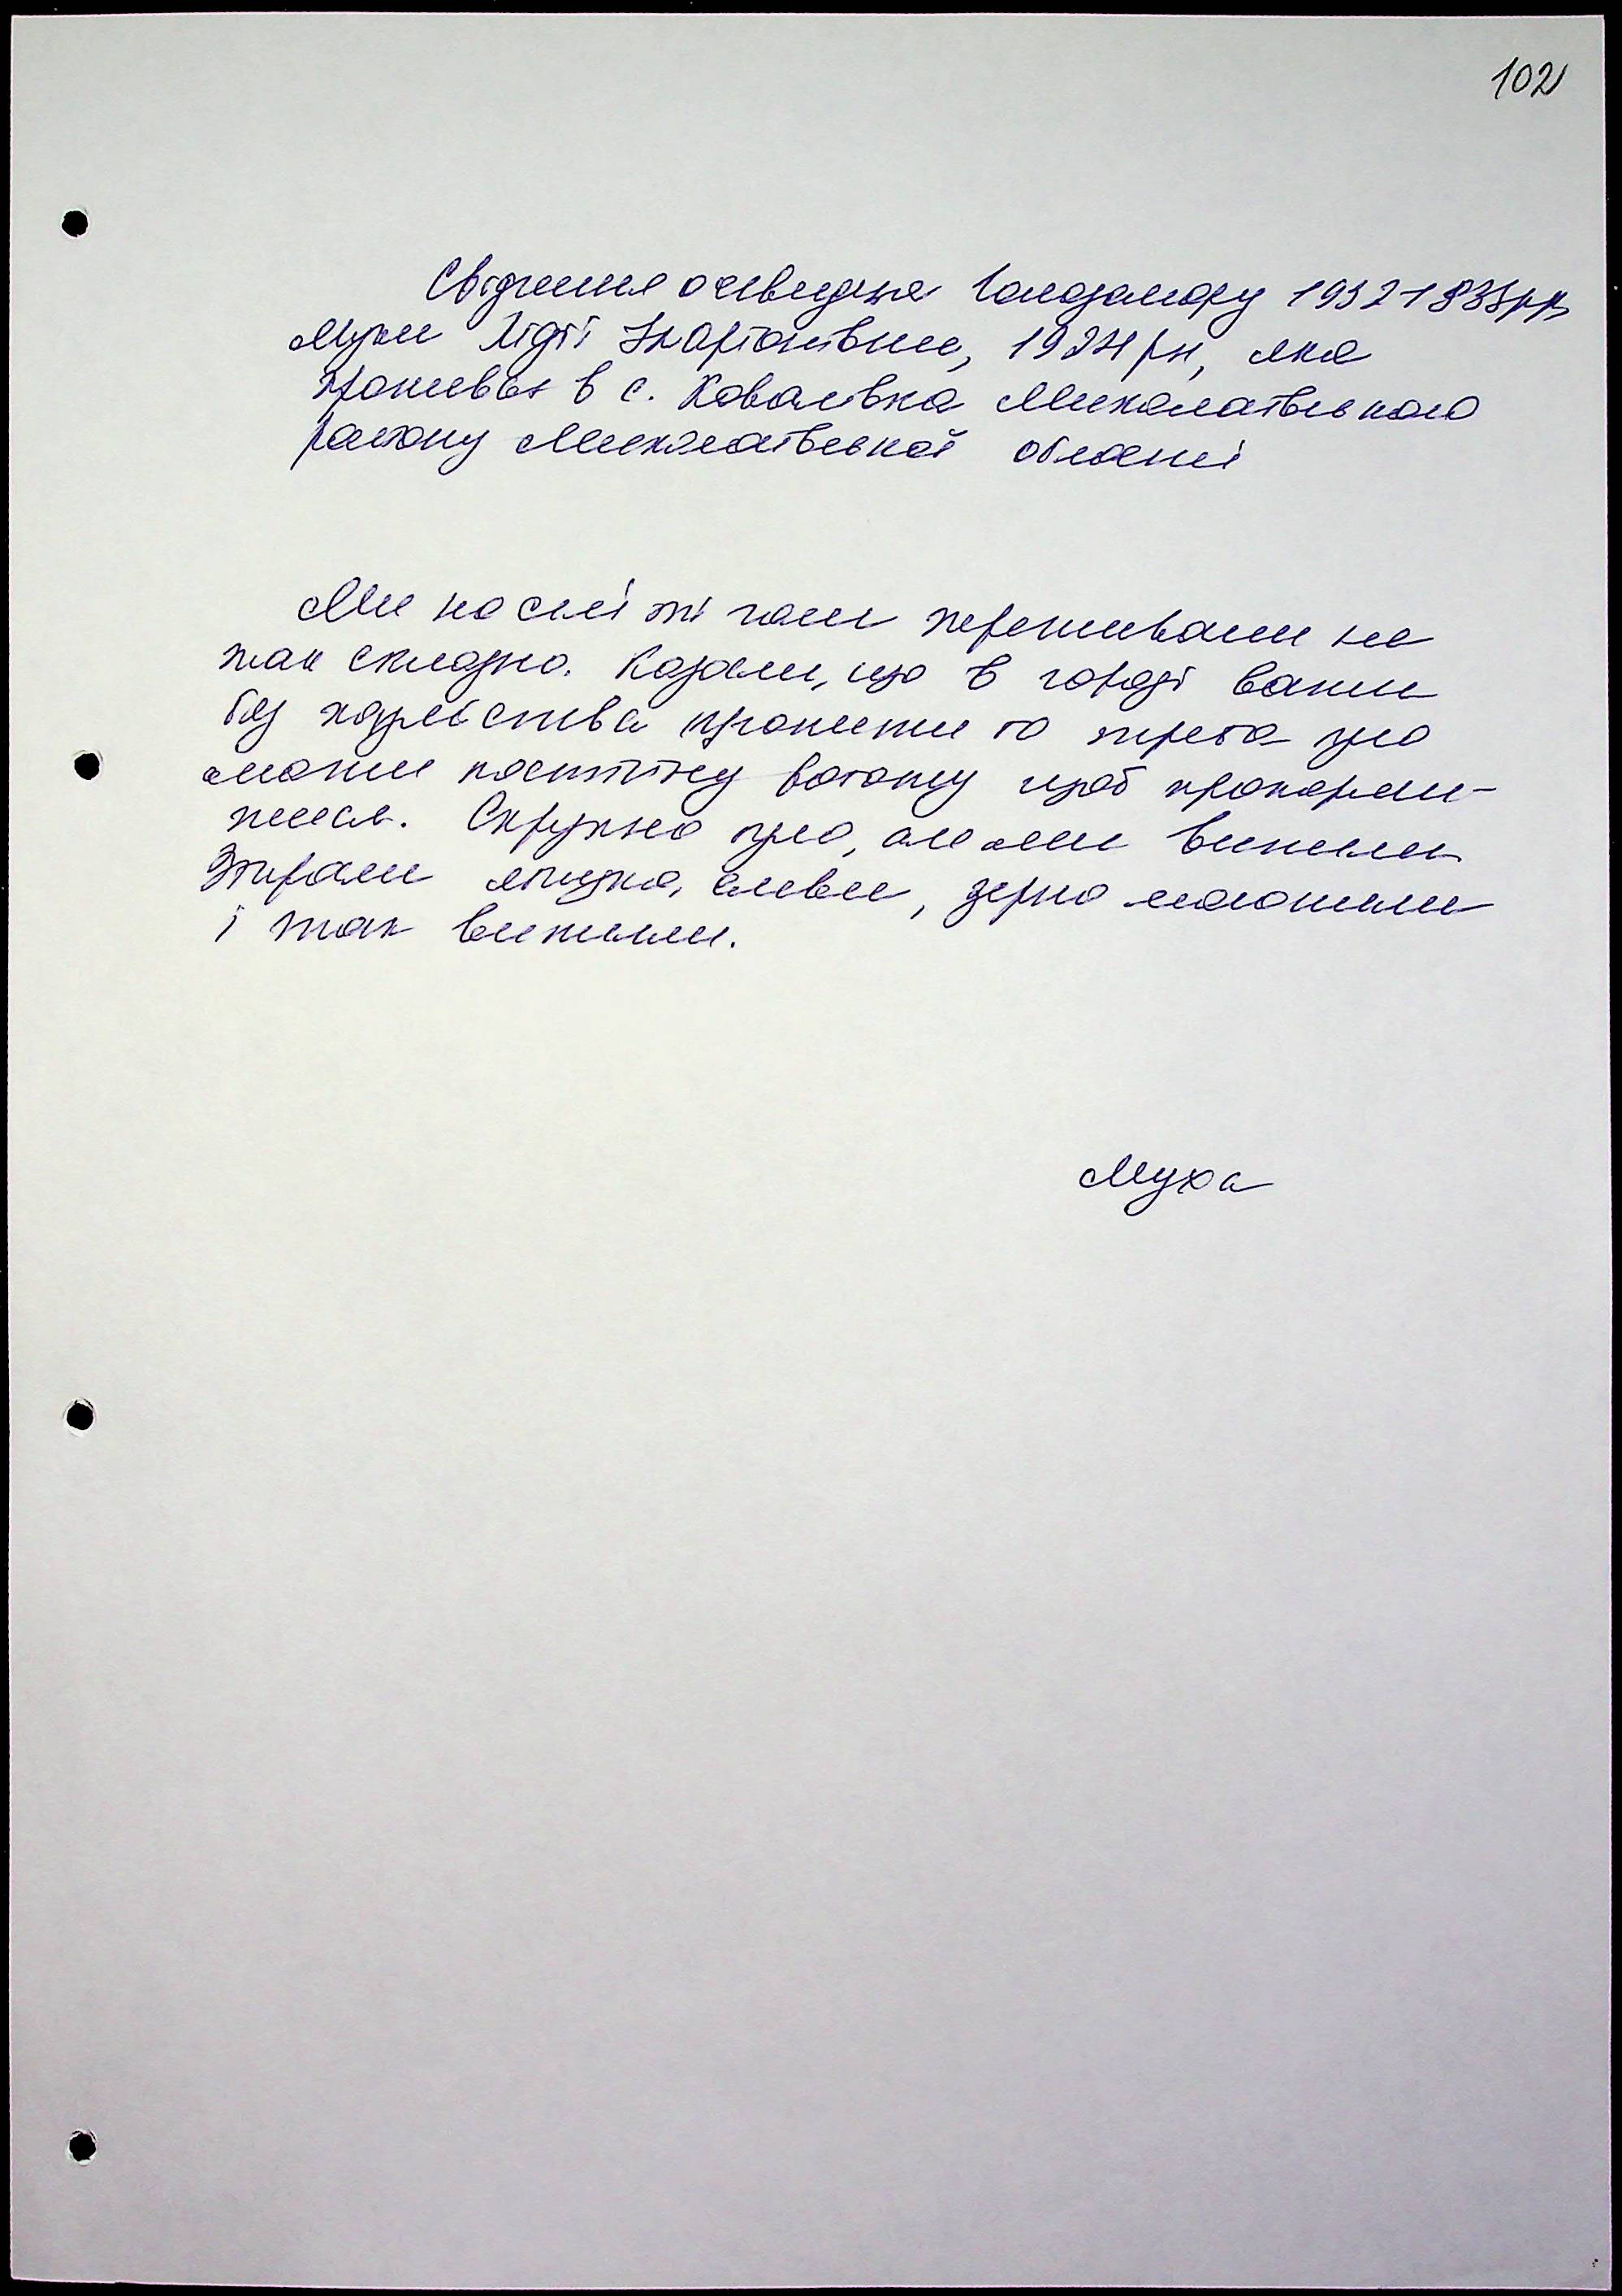 102
Свідчення очевидця Голодомору 1932-1933рр
Мухи Лідії 1924 рн, яка
проживає в с. Ковалівка Миколаївського
району Миколаївської області
Ми на селі ті часи переживали не
так складно. Казали, що в городі важче
без хазяйства прожити то треба було
мати постійну роботу щоб прокорми-
тись. Скрутно було, але ми вижили
Збирали ягідки, сливи, зерно
і так вижили.
Муха